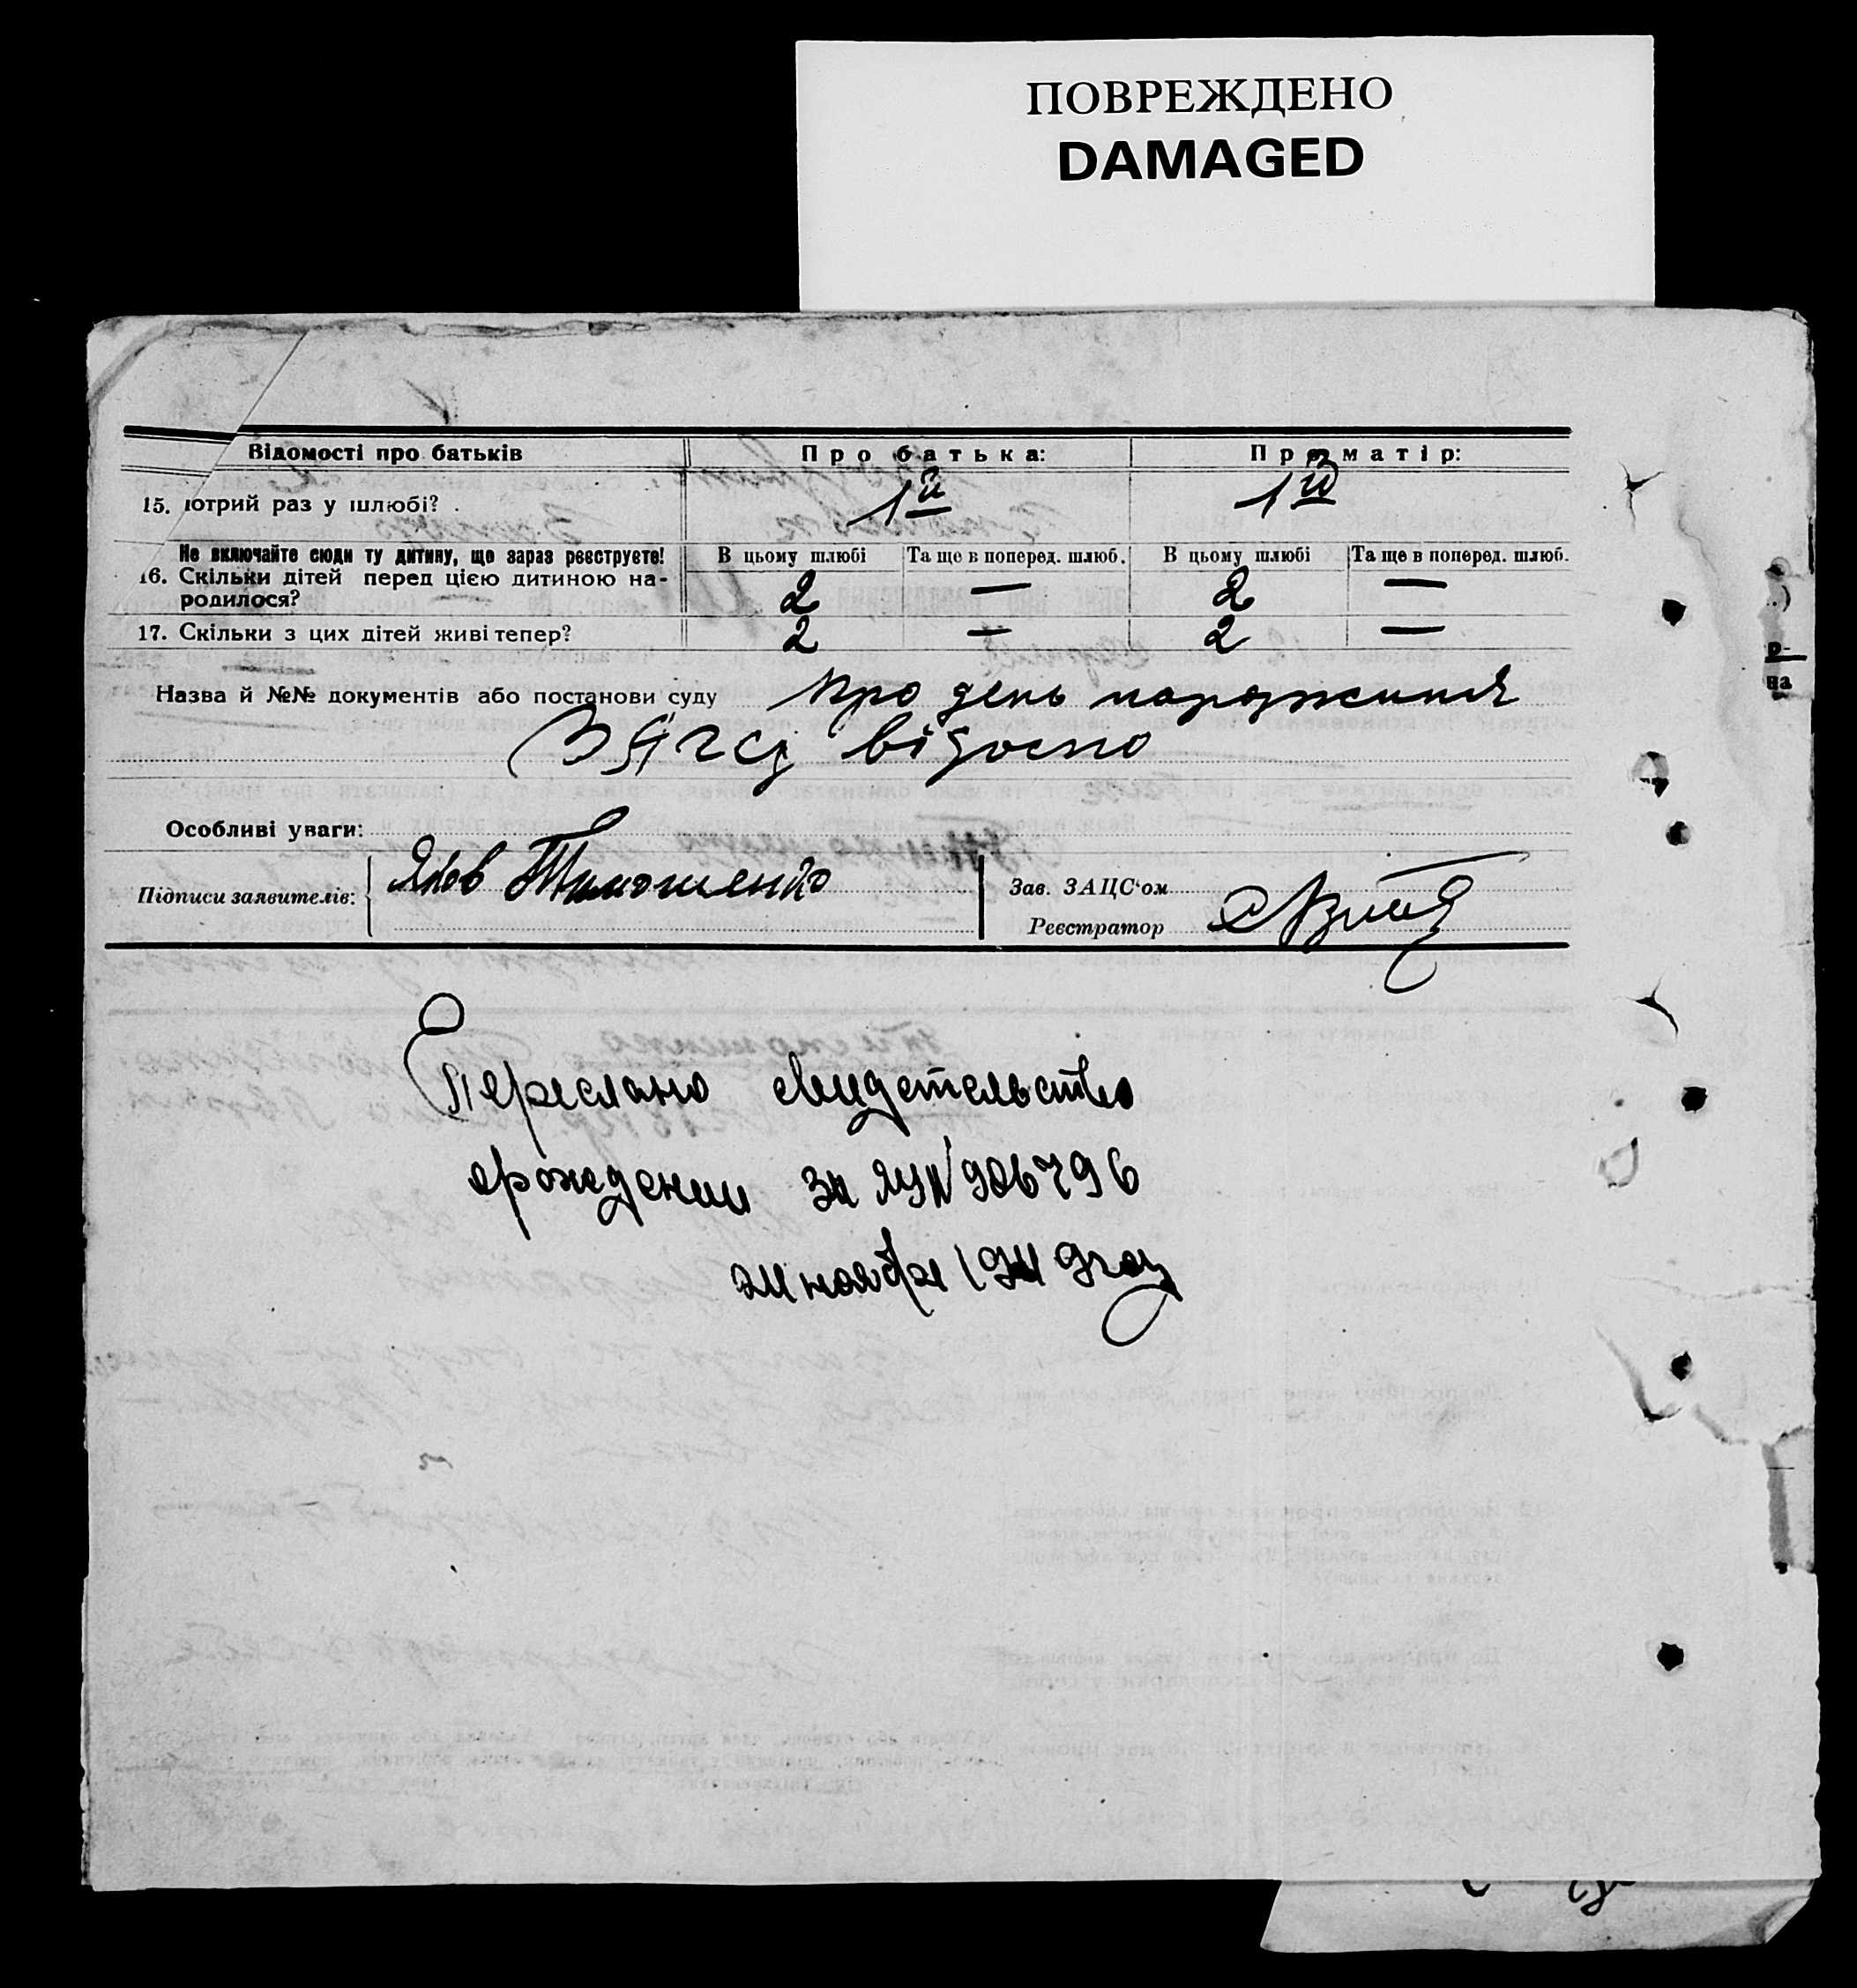 ПОВРЕЖДЕНО
DAMAGED
Відомості про батьків
Про батька:
Про матір:
15. отрий раз у шлюбі?
1й
1й
Не включайте сюди ту дитину, що зараз реєструєте!
В цьому шлюбі
Та ще в поперед. шлюб.
В цьому шлюбі
Та ще в поперед. шлюб.
16. Скільки дітей перед цією дитиною на-
родилося?
2
—
2
—
17. Скільки з цих дітей живі тепер?
2
—
2
—
Назва й №№ документів або постанови суду про день народження
ЗАГСу відомо
Особливі уваги:
Підписи заявителів: Яков Тимошенко
Зав. ЗАЦС'ом
Реєстратор
Переслано свидетельство
о рождении за
ноября году
р-
на